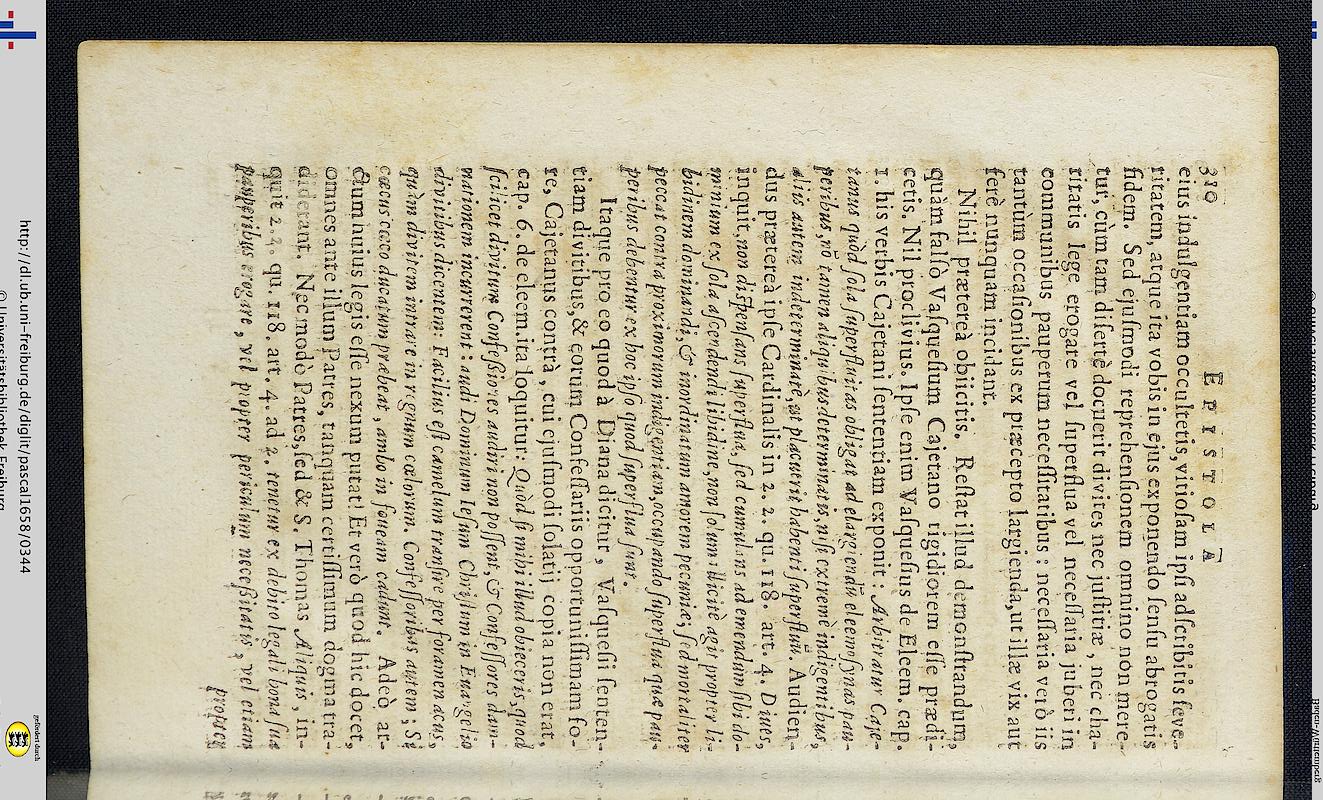 310 EPISTOLA
eius indulgentiam occultetis, vitiosam ipsi adscribitis seve-
ritatem, atque ita vobis in ejus exponendo sensu abrogatis
fidem. Sed ejusmodi reprehensionem omnino non mere-
tur, cùm tam disertè docuerit divites nec justitiæ, nec cha-
ritatis lege erogare vel superflua vel necessaria juberi in
communibus pauperum necessitatibus: necessaria verò iis
tantùm occasionibus ex præcepto largienda, ut illæ vix aut
ferè nunquam incidant.
Nihil prætereà obiicitis. Restat illud demonstrandum,
quàm falsò Vasquesium Cajetano rigidiorem esse prædi-
cetis. Nil proclivius. Ipse enim Vasquesius de Eleem. cap.
1. his verbis Cajetani sententiam exponit: Arbitratur Caje-
tanus quòd sola superfluitas obligat ad elargiendū eleemosynas pau-
peribus, nō tamen aliquibus determinatis, nisi extremè indigentibus,
aliis autem indeterminatè, ut placuerit habenti superfluū. Audien-
dus prætereà ipse Cardinalis in 2. 2. qu. 118. art. 4. Dives,
inquit, non dispensans superflua, sed cumulans ad emendum sibi do-
minium ex sola ascendendi libidine, non solum illicitè agit propter li-
bidinem dominandi, & inordinatum amorem pecuniæ, sed mortaliter
peccat contra proximorum indigentiam, occupando superflua quæ pau-
peribus debentur ex hoc ipso quod superflua sunt.
Itaque pro eo quod à Diana dicitur, Vasquesii senten-
tiam divitibus, & eorum Confessariis opportunissimam fo-
re, Cajetanus contrà, cui ejusmodi solatij copia non erat,
cap. 6. de eleem. ita loquitur: Quòd si mihi illud obieceris, quod
scilicet divitum Confessores audiri non possent, & Confessores dam-
nationem incurrerent: audi Dominum Iesum Christum in Euangelio
divitibus dicentem: Facilius est camelum transire per foramen acus,
quàm divitem intrare in regnum cœlorum. Confessoribus autem; Si
cæcus cæco ducatum præbeat, ambo in foveam cadunt. Adeò ar-
ctum huius legis esse nexum putat! Et verò quod hic docet,
omnes ante illum Patres, tanquam certissimum dogma tra-
diderant. Nec modò Patres, sed & S. Thomas Aliquis, in-
quit 2. 2. qu. 118. art. 4. ad 2. tenetur ex debito legali bona sua
pauperibus erogare, vel propter periculum necessitatis, vel etiam
propter
http://dl.ub.uni-freiburg.de/diglit/pascal1658/0344
© Universitätsbibliothek Freiburg
gefördert durch